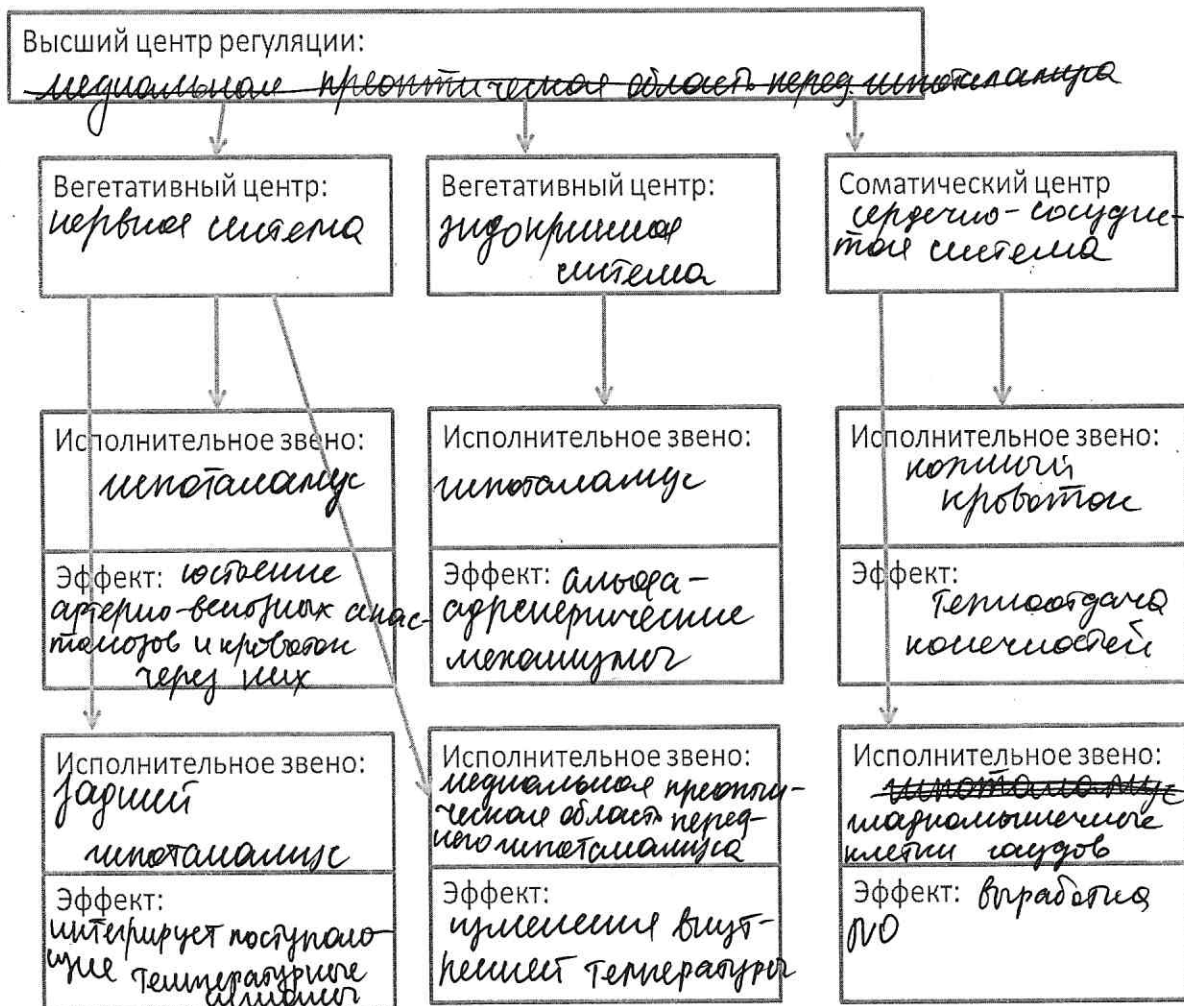 Высший центр регуляции:
медиальная преоптическая область перед гипоталамуса
Вегетативный центр:
нервная система
Вегетативный центр:
эндокринная
система
Соматический центр
сердечно-сосудис-
тая система
Исполнительное звено:
гипоталамус
Эффект:
артерио-венозных анас-
томозов и кровоток
через них
Исполнительное звено:
гипоталамус
Эффект: альфа-
адренергические
механизмы
Исполнительное звено:
кожный
кровоток
Эффект:
теплоотдача
конечностей
Исполнительное звено:
задний
гипоталамус
Эффект:
интегрирует поступаю-
щие температурные
сигналы
Исполнительное звено:
медиальная преопти-
ческая область перед-
него гипоталамуса
Эффект:
изменения внут-
ренней температуры
Исполнительное звено:
гипоталамус
гладкомышечные
клетки сосудов
Эффект: выработка
NO